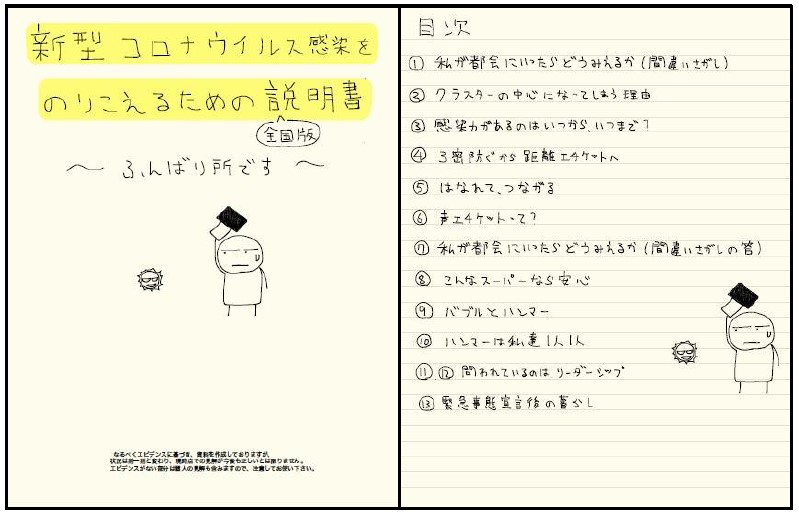 新型コロナウイルス感染を
のりこえるための説明書
全国版
～ふんばり所です～
なるべくエビデンスに基づき、資料を作成しておりますが、
状況は刻一刻と変わり、現時点での見解が今後も正しいとは限りません。
エビデンスがない部分は個人の見解も含みますので、注意してお使い下さい。
目次
① 私が都会にいったらどうみえるか(間違いさがし)
② クラスターの中心になってしまう理由
③ 感染力があるのはいつから、いつまで?
④ 3密防ぐから距離エチケットへ
⑤ はなれて、つながる
⑥ 声エチケットって?
⑦ 私が都会にいったらどうみえるか(間違いさがしの答)
⑧ こんなスーパーなら安心
⑨ バブルとハンマー
⑩ ハンマーは私達1人1人
⑪ ⑫ 問われているのはリーダーシップ
⑬ 緊急事態宣言後の暮らし